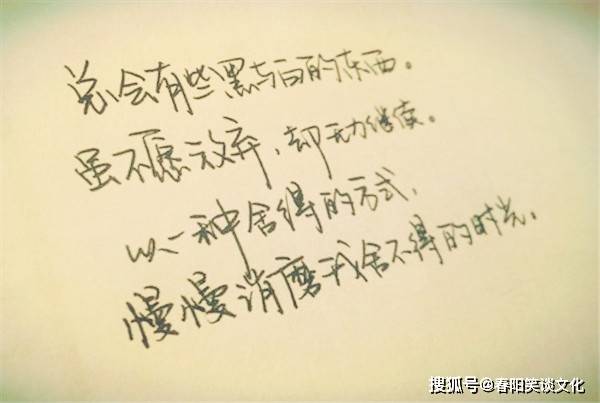 总会有些黑与白的东西。
虽不愿放弃,却无力继续。
以一种舍得的方式,
慢慢消磨我舍不得的时光。
搜狐号@春阳笑谈文化